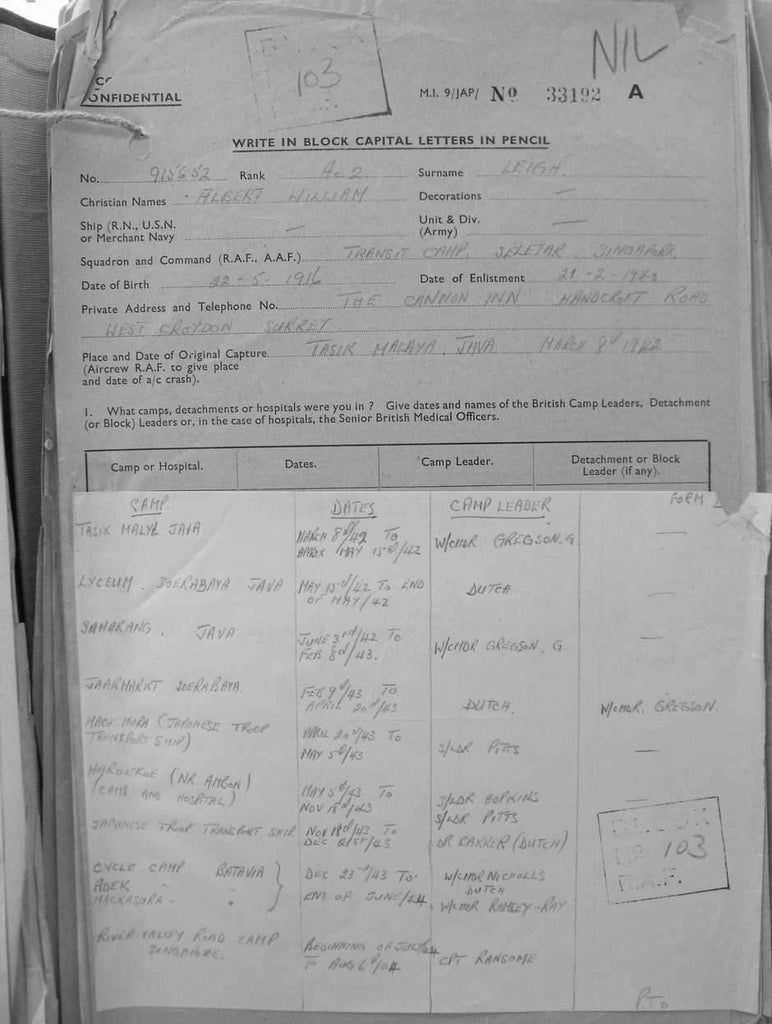 NIL
BLOCK
103
CONFIDENTIAL
M.I. 9/JAP/ No 33192 A
WRITE IN BLOCK CAPITAL LETTERS IN PENCIL
No. 915652 Rank AC2 Surname LEIGH.
Christian Names ALBERT WILLIAM Decorations —
Ship (R.N., U.S.N. or Merchant Navy — Unit & Div. (Army) —
Squadron and Command (R.A.F., A.A.F.) TRANSIT CAMP, SELETAR. SINGAPORE.
Date of Birth 22-5-1916 Date of Enlistment 21-2-1940
Private Address and Telephone No. THE CANNON INN HANDCROFT ROAD
WEST CROYDON SURREY
Place and Date of Original Capture TASIK MALAYA, JAVA. MARCH 8th 1942
(Aircrew R.A.F. to give place
and date of a/c crash).
1. What camps, detachments or hospitals were you in ? Give dates and names of the British Camp Leaders, Detachment
(or Block) Leaders or, in the case of hospitals, the Senior British Medical Officers.
Camp or Hospital. Dates. Camp Leader. Detachment or Block Leader (if any).
CAMP. DATES CAMP LEADER FORM
TASIK MALYA JAVA MARCH 8th/42 TO W/CMDR GREGSON. G. —
APPROX MAY 15th/42
LYCEUM. SOERABAYA JAVA MAY 15th/42 TO END DUTCH —
OF MAY/42
SAMARANG. JAVA JUNE 3rd/42 TO W/CMDR GREGSON. G —
FEB 8th/43.
JAARMARKT SOERABAYA. FEB 9th/43 TO DUTCH. W/CMDR. GREGSON.
APRIL 20th/43
(JAPANESE TROOP APRIL 20th/43 TO S/LDR PITTS —
TRANSPORT SHIP) MAY 5th/43
HAROEKOE (NR AMBON) MAY 5th/43 TO S/LDR HOPKINS —
(CAMP AND HOSPITAL) NOV 18th/43 S/LDR PITTS
JAPANESE TROOP TRANSPORT SHIP NOV 18th/43 TO DR BAKKER (DUTCH)
DEC /43
CYCLE CAMP BATAVIA DEC 23rd/43 TO W/CMDR NICHOLLS
ADEK " DUTCH
MACKASURA " END OF JUNE/44. W/CMDR RAMSEY-RAY
RIVER VALLEY ROAD CAMP BEGINNING OF JULY/44 CPT RANSOME
SINGAPORE. TO AUG 6th/44
BLOCK
No 103
R.A.F.
P.T.O